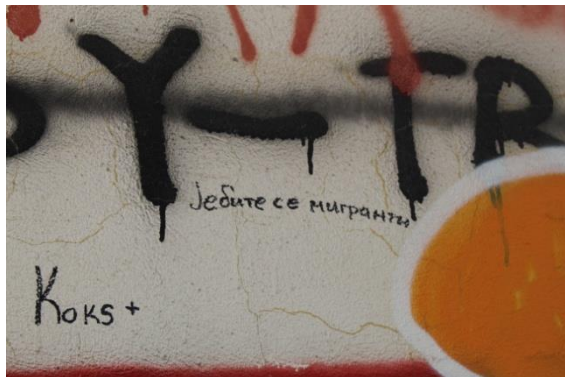 Y-TR
Јебите се мигранти
Koks +